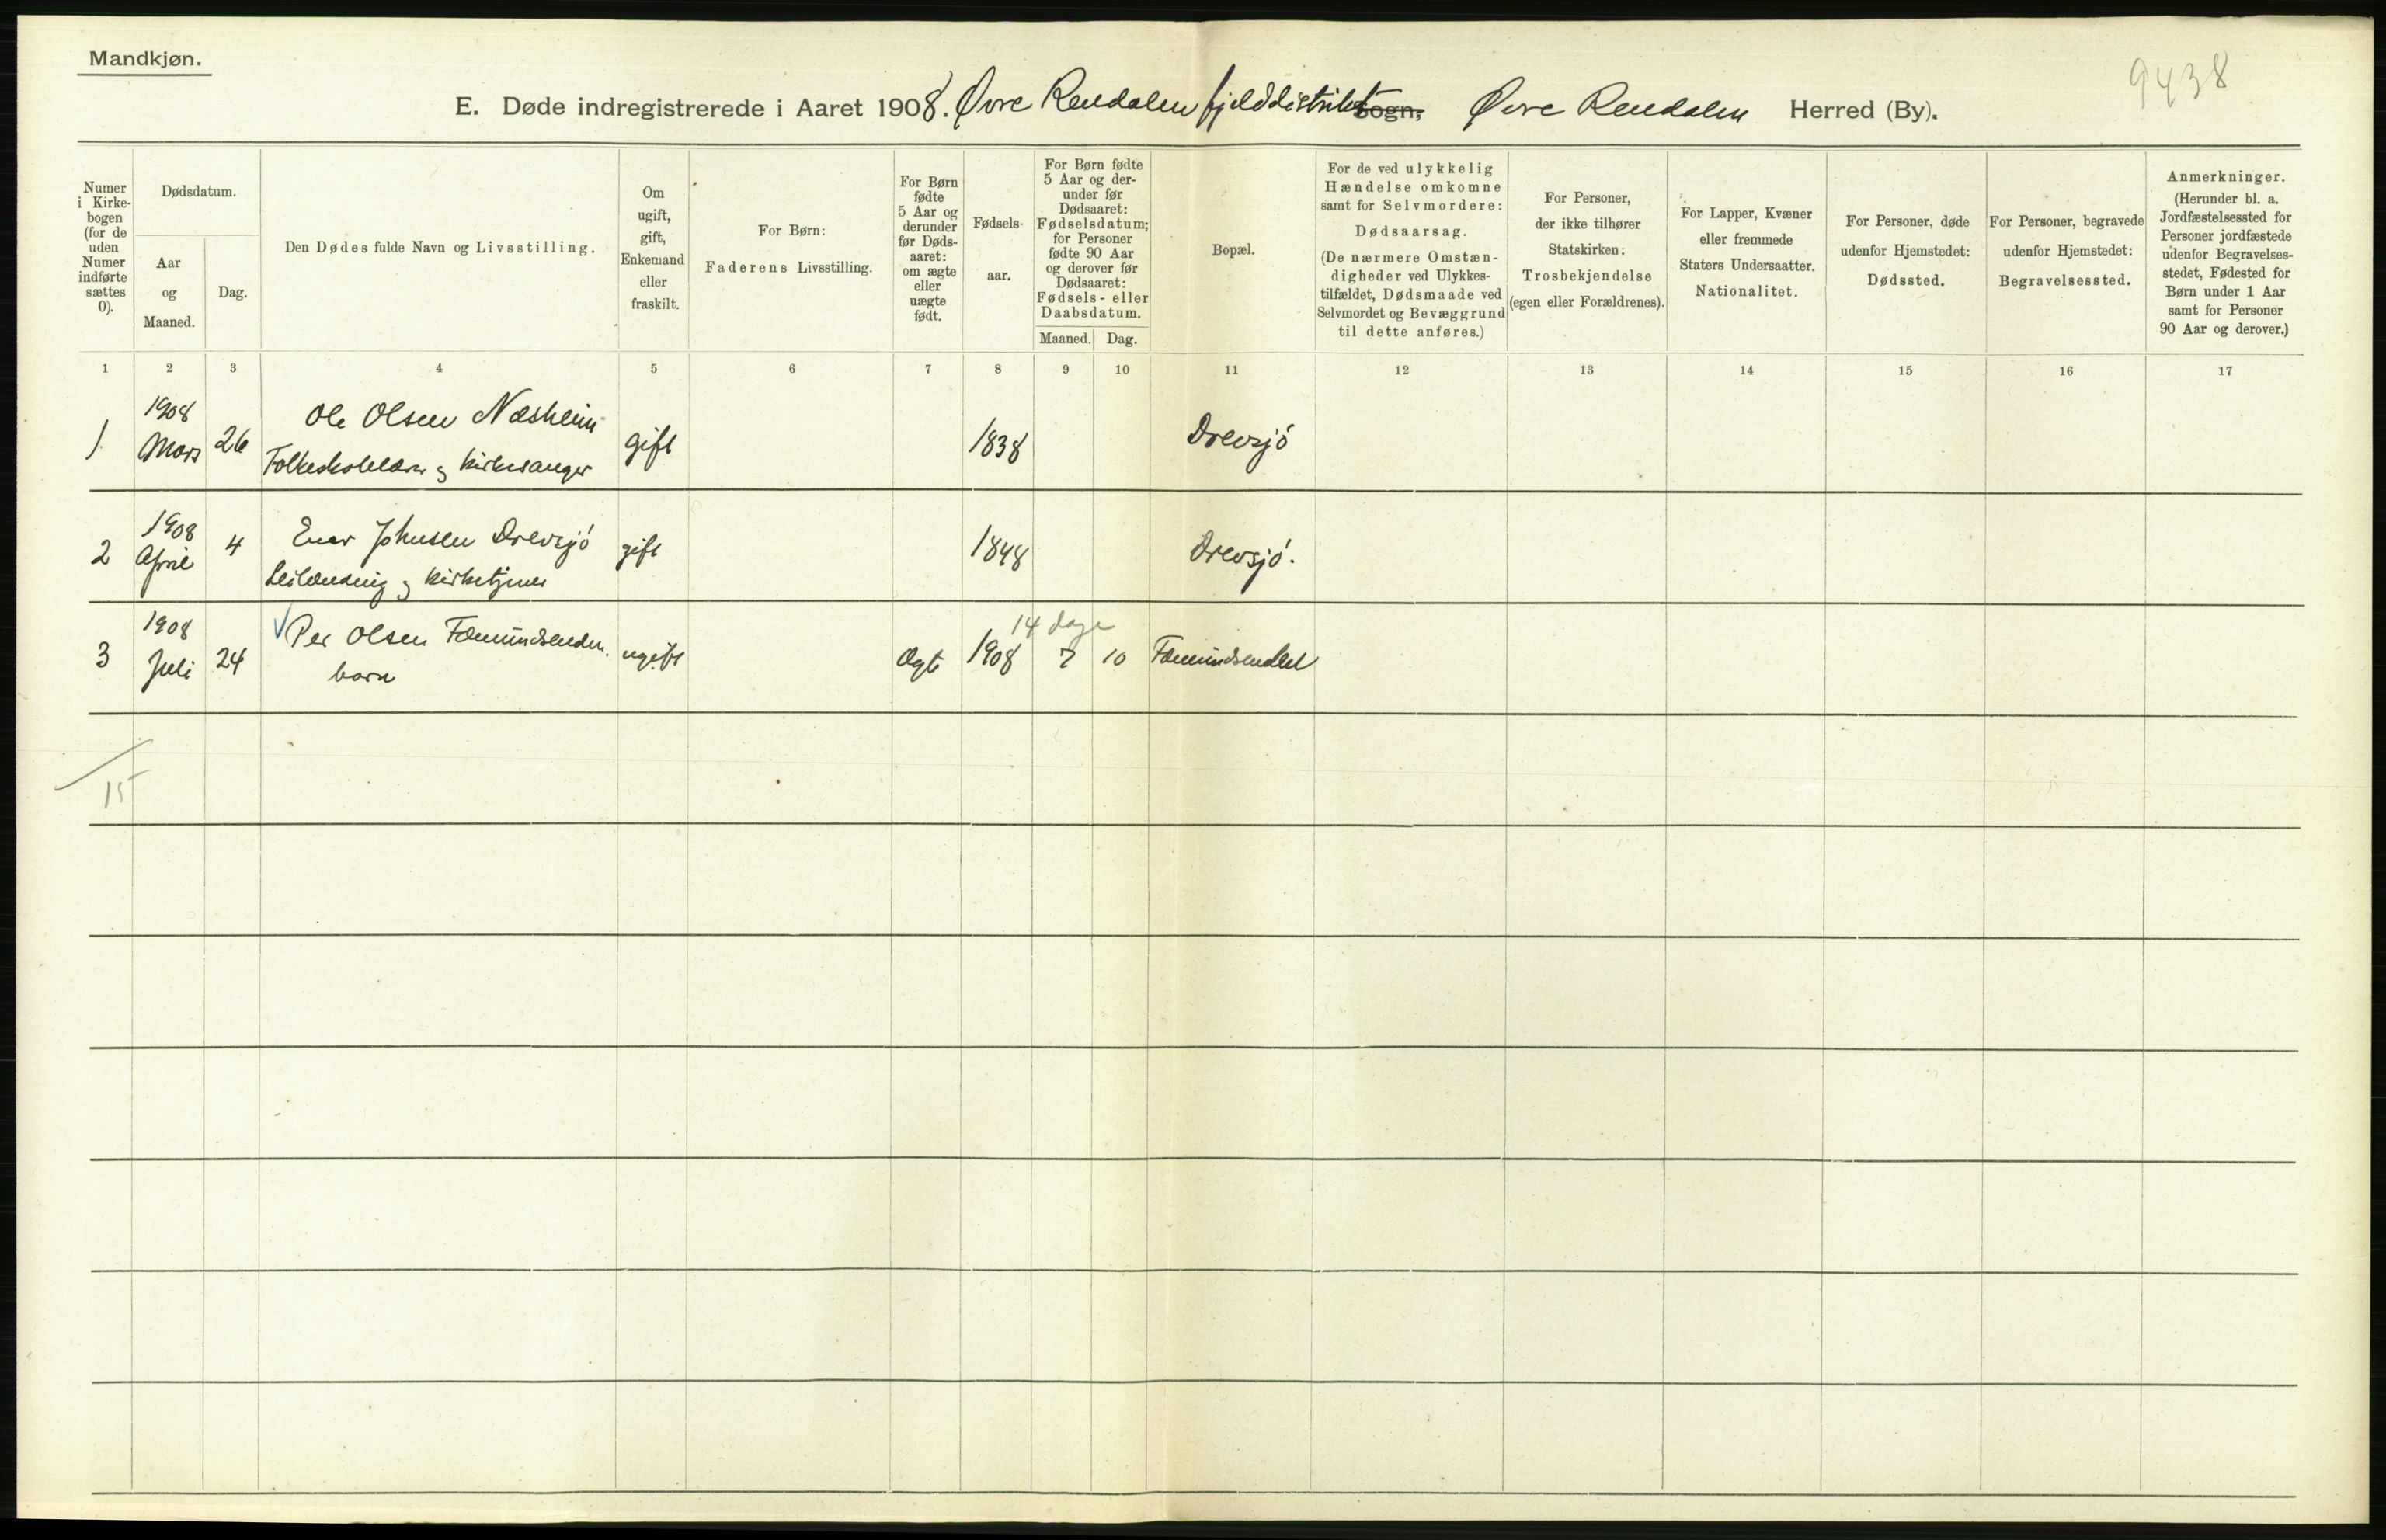 Mandkjøn.
9438
E. Døde indregistrerede i Aaret 1908. Øvre Rendalen fjelddistrikt Sogn, Øvre Rendalen Herred (By).
Numer i Kirke-bogen (for de uden Numer indførte sættes 0).
Dødsdatum.
Aar og Maaned.
Dag.
Den Dødes fulde Navn og Livsstilling.
Om ugift, gift, Enkemand eller fraskilt.
For Børn: Faderens Livsstilling.
For Børn fødte 5 Aar og derunder før Døds-aaret: om ægte eller uægte født.
Fødsels-aar.
For Børn fødte 5 Aar og der-under før Dødsaaret: Fødselsdatum; for Personer fødte 90 Aar og derover før Dødsaaret: Fødsels- eller Daabsdatum.
Maaned. Dag.
Bopæl.
For de ved ulykkelig Hændelse omkomne samt for Selvmordere: Dødsaarsag. (De nærmere Omstæn-digheder ved Ulykkes-tilfældet, Dødsmaade ved Selvmordet og Bevæggrund til dette anføres.)
For Personer, der ikke tilhører Statskirken: Trosbekjendelse (egen eller Forældrenes).
For Lapper, Kvæner eller fremmede Staters Undersaatter. Nationalitet.
For Personer, døde udenfor Hjemstedet: Dødssted.
For Personer, begravede udenfor Hjemstedet: Begravelsessted.
Anmerkninger. (Herunder bl. a. Jordfæstelsessted for Personer jordfæstede udenfor Begravelses-stedet, Fødested for Børn under 1 Aar samt for Personer 90 Aar og derover.)
1 2 3 4 5 6 7 8 9 10 11 12 13 14 15 16 17
1 1908 Mars 26 Ole Olsen Næsheim gift 1838 Drevsjö
Folkeskolelærer og kirkesanger
2 1908 April 4 Johnsen Drevsjö gift 1848 Drevsjö.
Leilænding og kirketjener
14 dage
3 1908 Juli 24 Per Olsen Fæmundsenden. ugift Ægte 1908 7 10 Fæmundsenden
barn
15